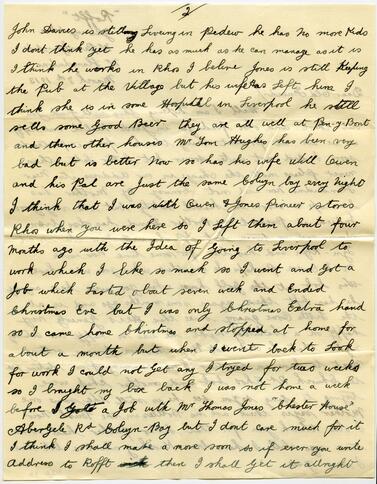 2/
John Davies is still living in Pendew he has no more Kids
I dont think yet he has as much as he can manage as it is
I think he works in Rhos I believe Jones is still Keeping
the Pub at the Village but his wife has Left him I
think she is in some Hospital in Liverpool he still
sells some Good Beer they are all well at Pen-y-Bont
and them other houses Mr Tom Hughes has been very
bad but is better Now so has his wife Will Owen
and his Pal are Just the same Colwyn bay every Night
I think that I was with Owen & Jones Pioneer stores
Rhos when you were here so I Left them about four
Months ago with the Idea of Going to Liverpool to
work which I like so much so I went and Got a
Job which Lasted about seven week and Ended
Christmas Eve but I was only Christmas Extra hand
so I came home Christmas and stopped at home for
about a month but when I went back to Look
for work I could not Get any I tryed for two weeks
so I braught my box back I was not home a week
before I Got a Job with Mr Thomas Jones "Chester House"
Abergele Rd Colwyn Bay but I dont care much for it
I think I shall make a move soon so if ever you write
Address to Rofft then I shall Get it allright